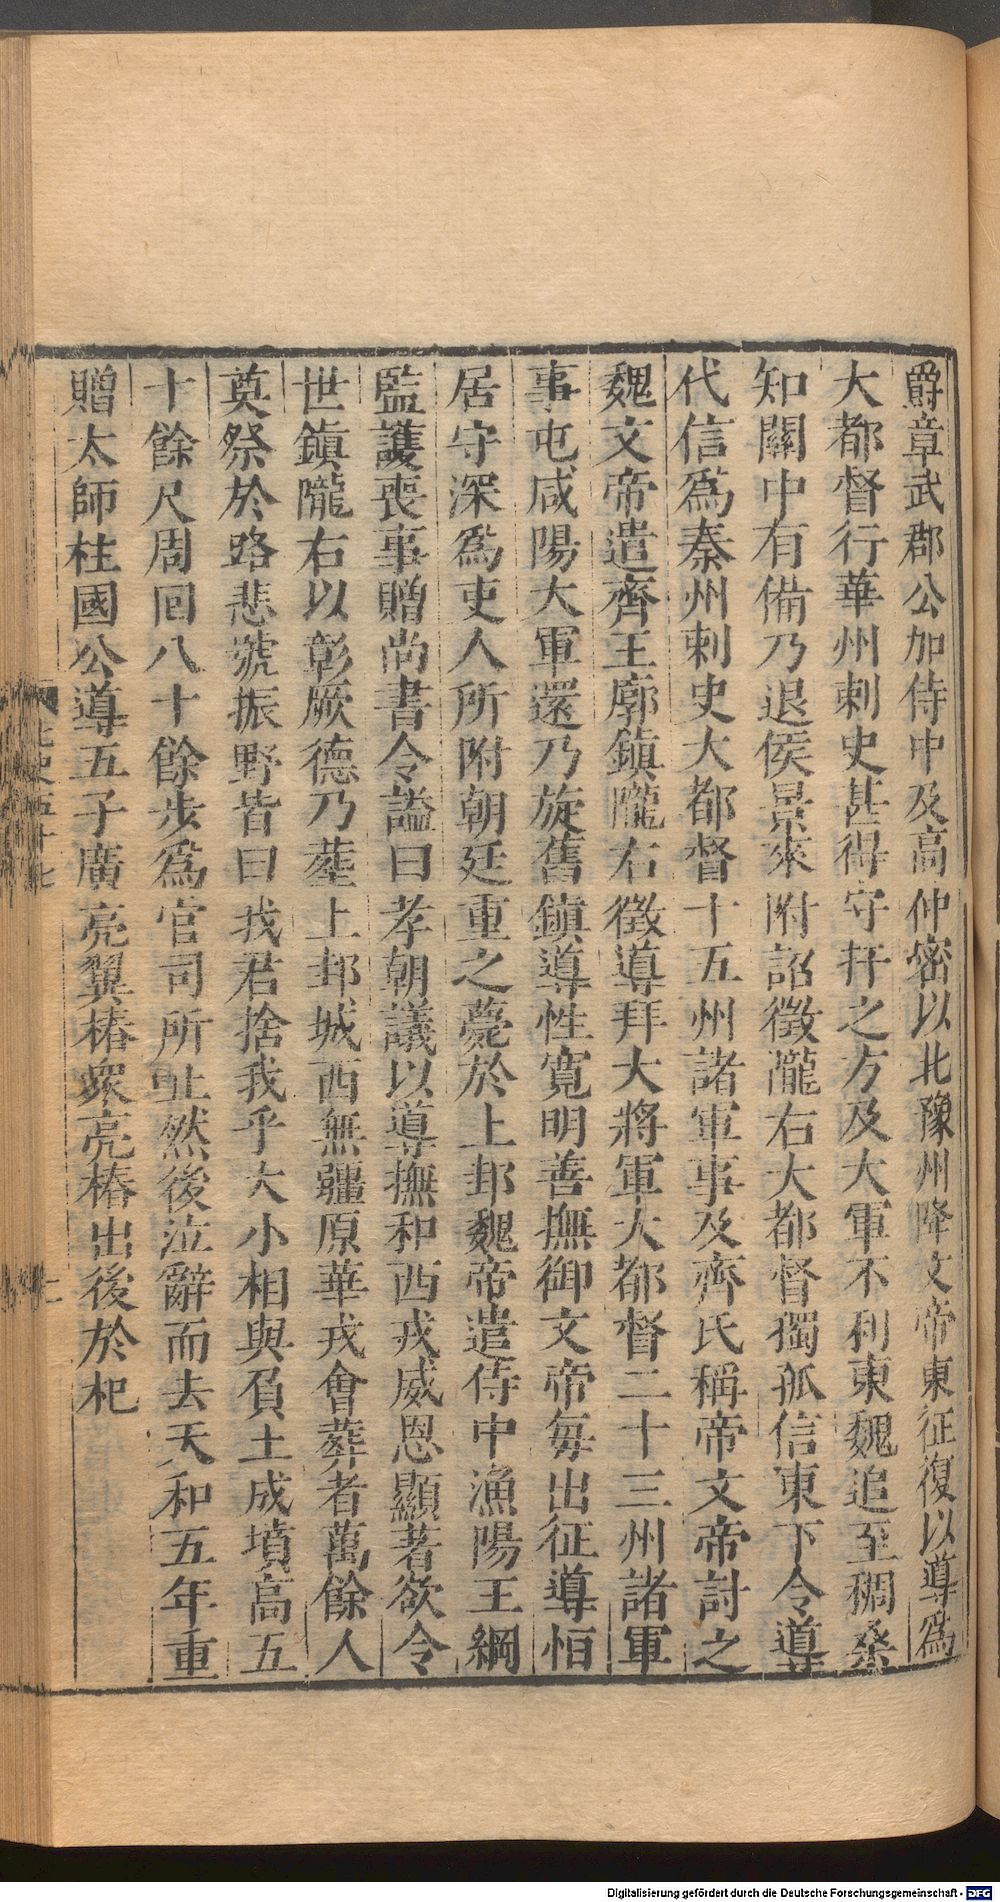 爵章武郡公加侍中及高仲密以北豫州降文帝東征復以導爲
大都督行華州刺史甚得守扞之方及大軍不利東魏追至稠桑
知關中有備乃退侯景來附詔徵隴右大都督獨孤信東下令導
代信爲秦州刺史大都督十五州諸軍事及齊氏稱帝文帝討之
魏文帝遣齊王廓鎮隴右徵導拜大將軍大都督二十三州諸軍
事屯咸陽大軍還乃旋舊鎮導性寬明善撫御文帝每出征導恒
居守深爲吏人所附朝廷重之薨於上邽魏帝遣侍中漁陽王綱
監護喪事贈尚書令謚曰孝朝議以導撫和西戎威恩顯著欲令
世鎮隴右以彰厥德乃葬上邽城西無疆原華戎會葬者萬餘人
奠祭於路悲號振野皆曰我君捨我乎大小相與負土成墳高五
十餘尺周回八十餘步爲官司所止然後泣辭而去天和五年重
贈太師柱國公導五子廣亮翼椿衆亮椿出後於杞
北史五十七
Digitalisierung gefördert durch die Deutsche Forschungsgemeinschaft - DFG